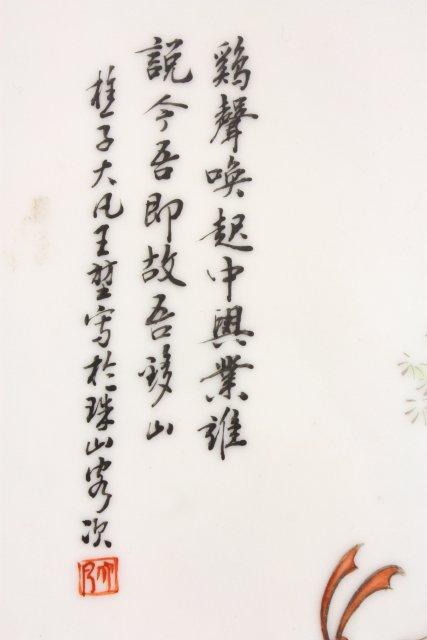 鷄聲喚起中興業誰
說今吾即故吾黟山
樵子大凡王堃寫於珠山客次